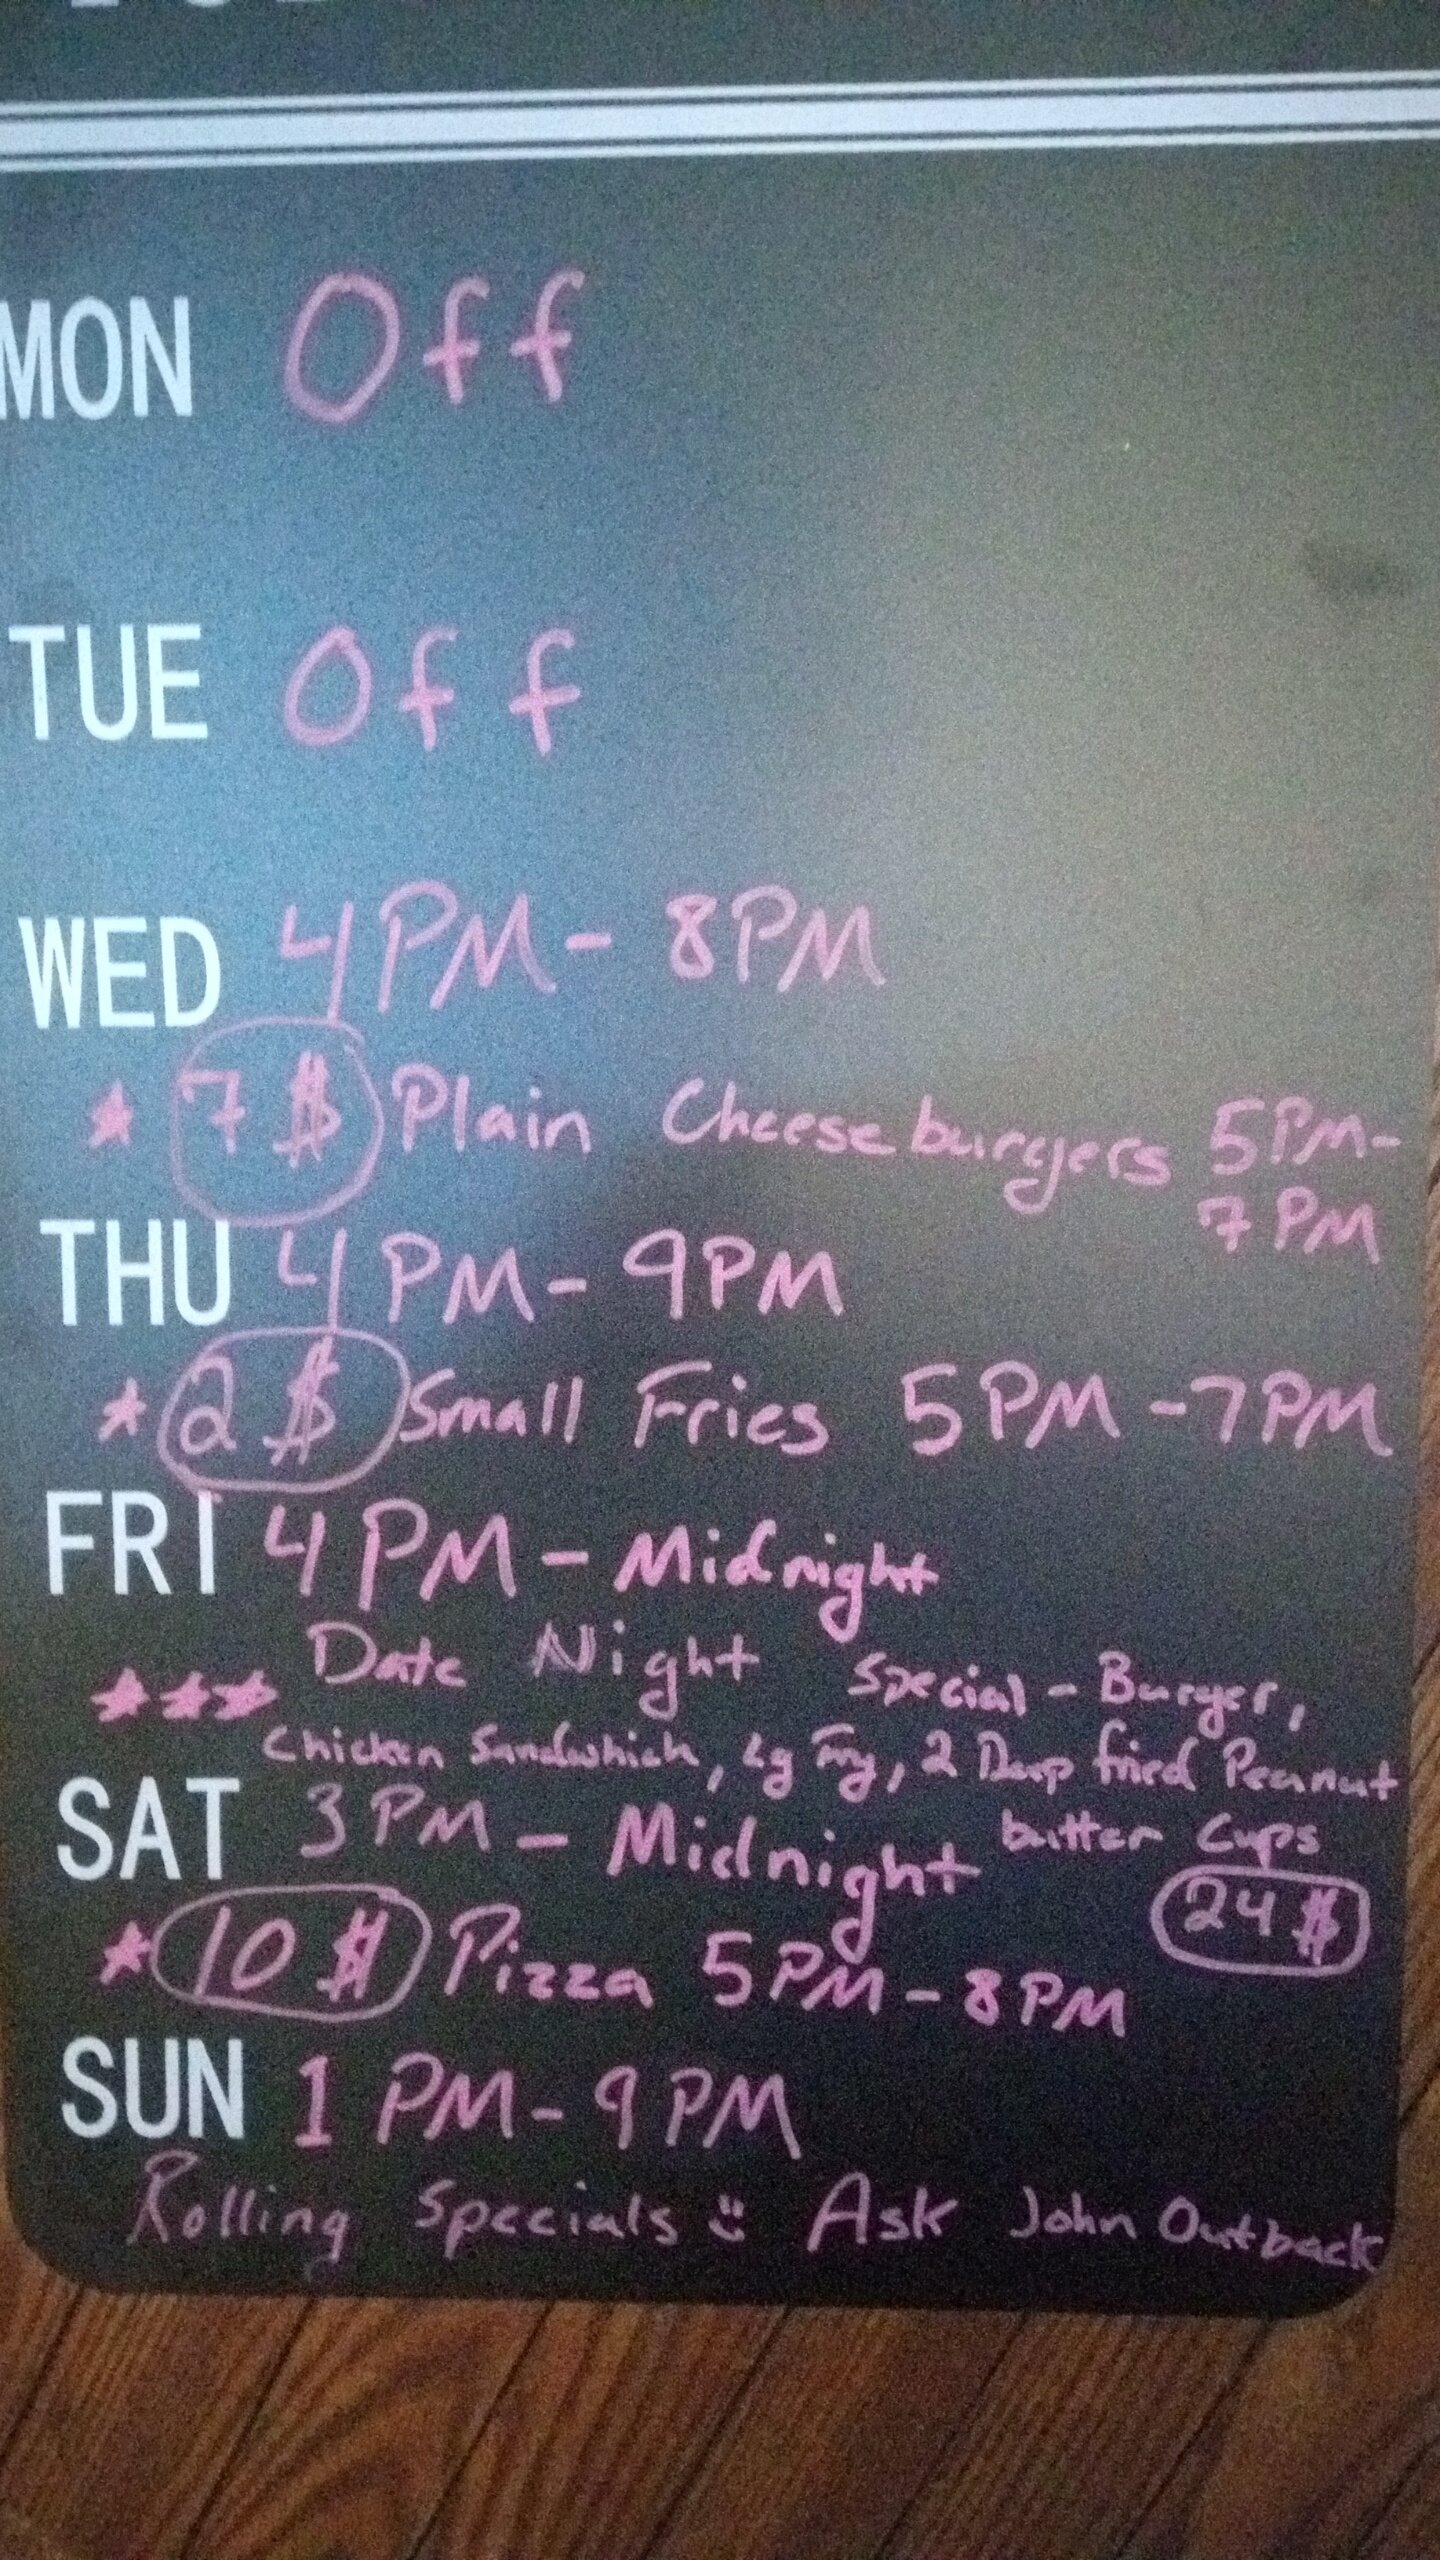 MON Off
TUE Off
WED 4PM - 8PM
★ 7$ Plain Cheeseburgers 5PM-
7PM
THU 4PM - 9PM
★ 2$ Small Fries 5PM - 7PM
FRI 4PM - Midnight
★★★ Date Night Special - Burger,
Chicken Sandwhich, Lg Fry, 2 Deep fried Peanut
butter Cups
24$
SAT 3PM - Midnight
★ 10$ Pizza 5PM - 8PM
SUN 1PM - 9PM
Rolling Specials :) Ask John Outback